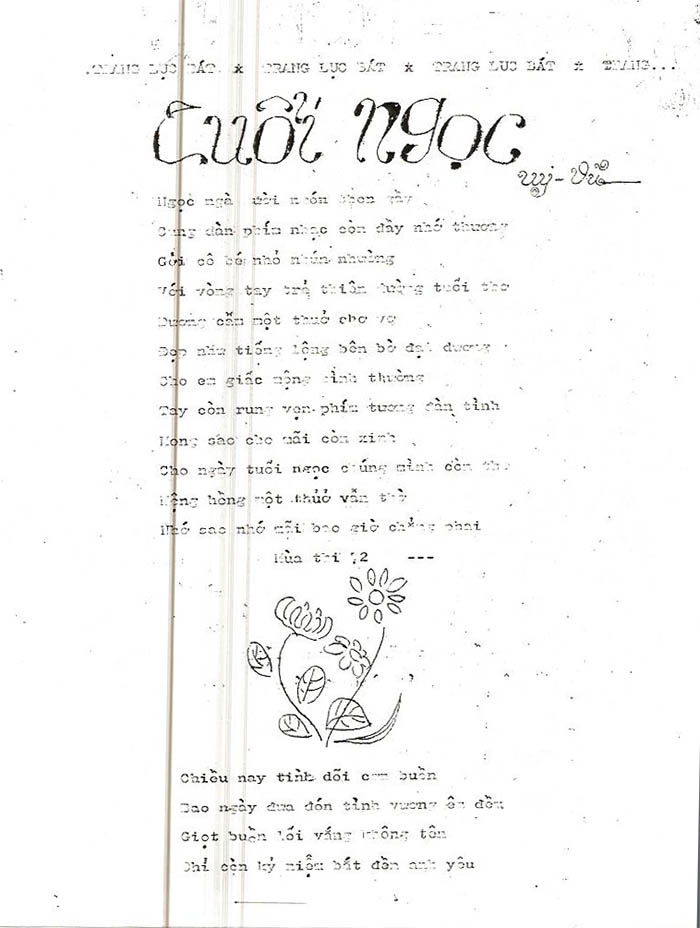 .TRANG LỤC BÁT * TRANG LỤC BÁT * TRANG LỤC BÁT * TRANG...
Tuổi Ngọc
Vũ
Ngọc ngà mười ngón
Cung đàn phím nhạc còn đầy nhớ thương
Gửi cô bé nhỏ nhún nhường
Với vòng tay trẻ thiên đường tuổi thơ
một thuở
Đẹp như tiếng lộng bên bờ đại dương
Cho em giấc mộng bình thường
Tay còn rung vọn phím tương đàn tình
Mong sao cho mãi còn xinh
Cho ngày tuổi ngọc chúng mình còn
Mộng hồng một thuở vẫn
Nhớ sao nhớ mãi bao giờ chẳng phai
Mùa thi 72 ---
Chiều nay tình dối em buồn
Bao ngày đưa đón tình vương êm đềm
Giọt buồn lối vắng không tên
Chỉ còn kỷ niệm bắt đền anh yêu